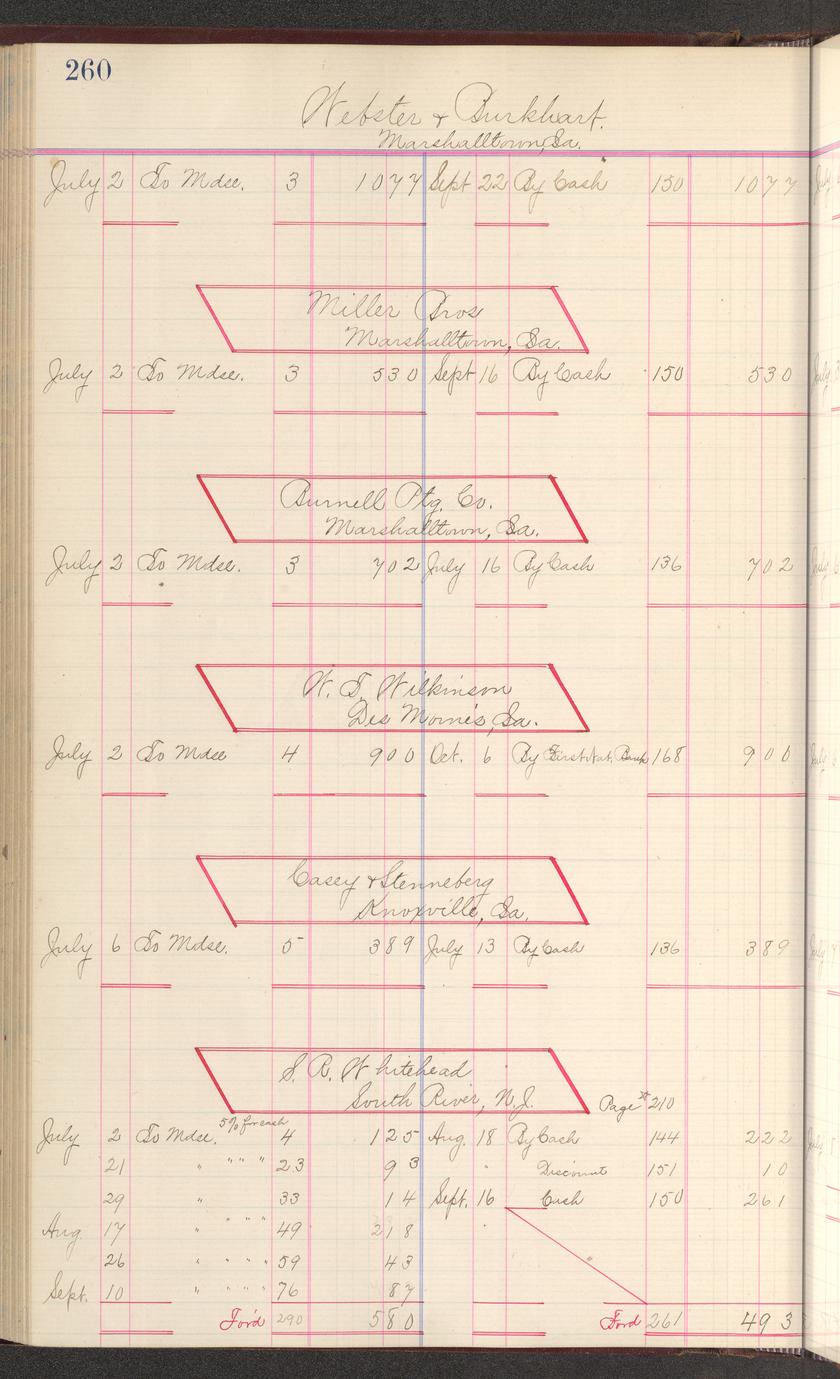 260
Webster & Burkhart.
Marshalltown, Ia.
July 2 To Mdse. 3 1077 Sept 22 By Cash 150 1077
Miller Bros
Marshalltown, Ia.
July 2 To Mdse. 3 530 Sept 16 By Cash 150 530
Burnell Ptg. Co.
Marshalltown, Ia.
July 2 To Mdse. 3 702 July 16 By Cash 136 702
W. T. Wilkinson
Des Moines, Ia.
July 2 To Mdse 4 900 Oct. 6 By First Nat. Bank 168 900
Casey & Stenneberg
Knoxville, Ia.
July 6 To Mdse. 5 389 July 13 By Cash 136 389
S. R. Whitehead
South River, N.J. Page # 210
July 2 To Mdse. 5% for cash 4 125 Aug. 18 By Cash 144 222
21 " " " " 23 93 " Discount 151 10
29 " " " " 33 14 Sept. 16 Cash 150 261
Aug. 17 " 49 218
26 " " " " 59 43
Sept. 10 " " " " 76 87
For'd 290 580 Ford 261 493